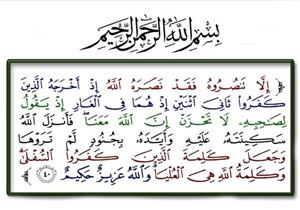 بِسْمِ اللَّهِ الرَّحْمَٰنِ الرَّحِيمِ
﴿إِلَّا تَنصُرُوهُ فَقَدْ نَصَرَهُ اللَّهُ إِذْ أَخْرَجَهُ الَّذِينَ
كَفَرُوا ثَانِيَ اثْنَيْنِ إِذْ هُمَا فِي الْغَارِ إِذْ يَقُولُ
لِصَاحِبِهِ لَا تَحْزَنْ إِنَّ اللَّهَ مَعَنَا فَأَنزَلَ اللَّهُ
سَكِينَتَهُ عَلَيْهِ وَأَيَّدَهُ بِجُنُودٍ لَّمْ تَرَوْهَا
وَجَعَلَ كَلِمَةَ الَّذِينَ كَفَرُوا السُّفْلَىٰ
وَكَلِمَةُ اللَّهِ هِيَ الْعُلْيَا وَاللَّهُ عَزِيزٌ حَكِيمٌ ٤٠﴾